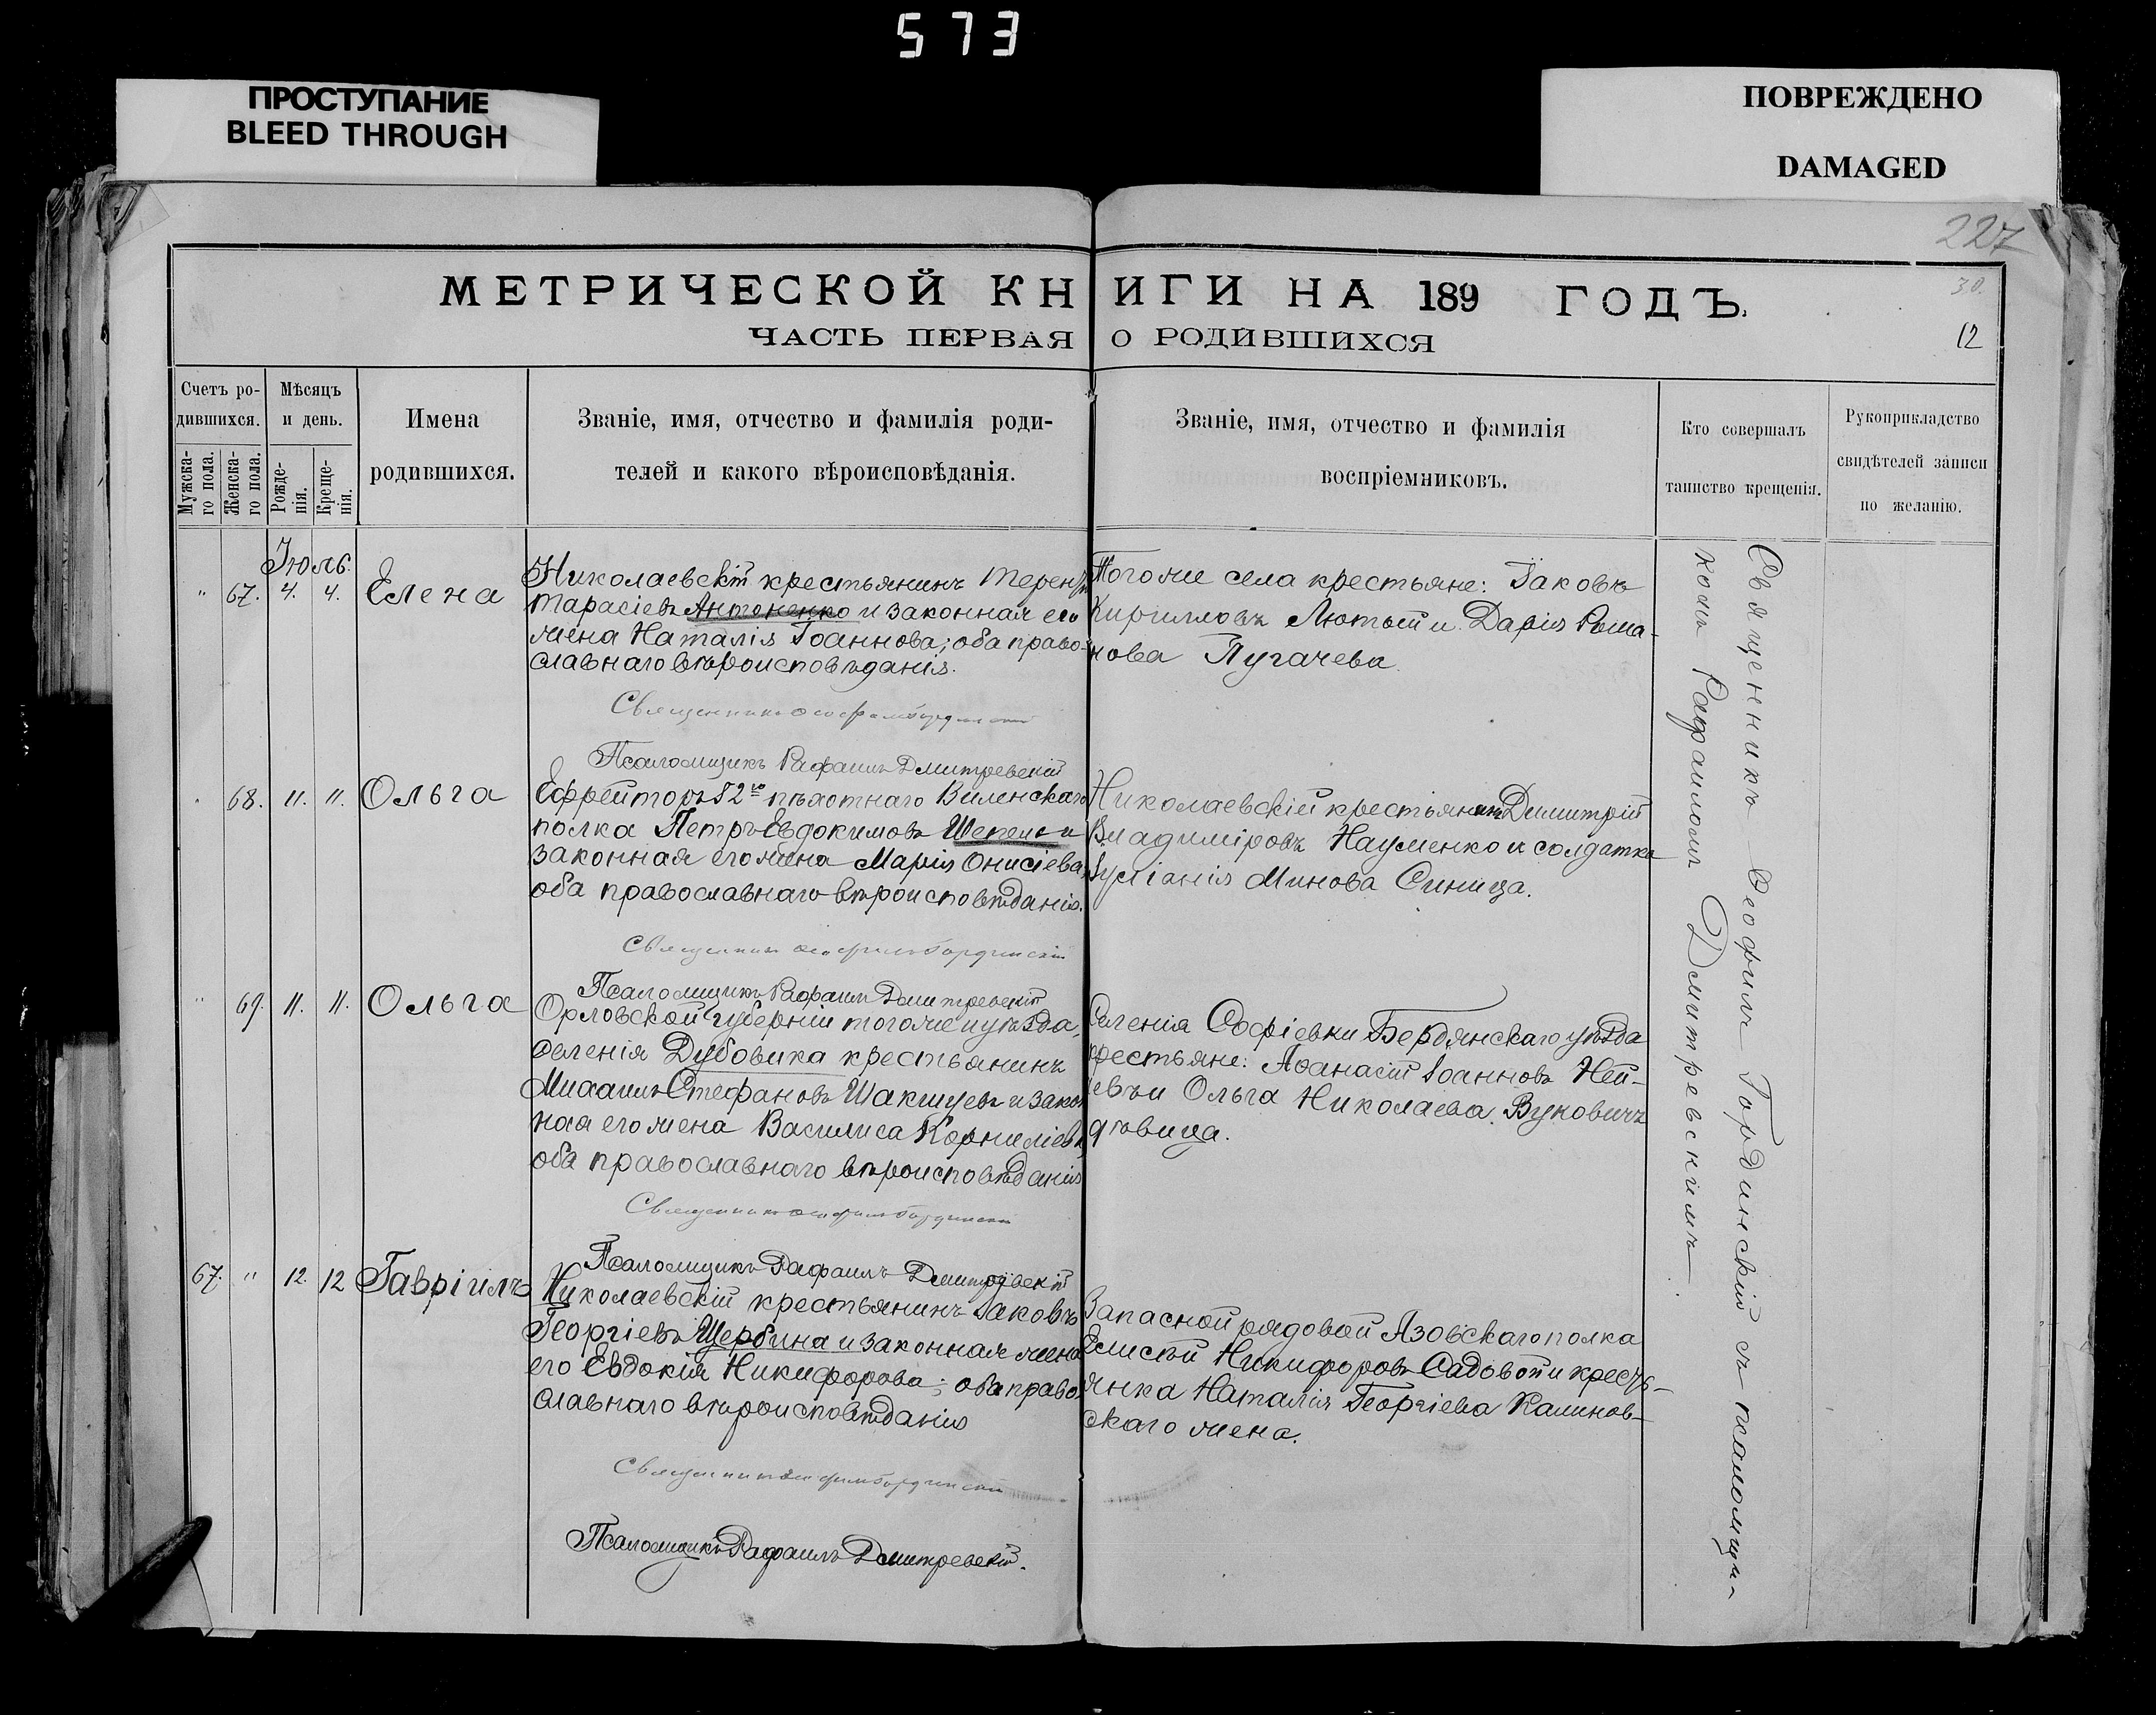 573
ПРОСТУПАНИЕ
BLEED THROUGH
ПОВРЕЖДЕНО
DAMAGED
227
30.
12
МЕТРИЧЕСКОЙ КНИГИ НА 189 ГОДЪ.
ЧАСТЬ ПЕРВАЯ О РОДИВШИХСЯ
Счетъ ро-
дившихся.
Мужска-
го пола.
Женска-
го пола.
Мѣсяцъ
и день.
Рожде-
нія.
Креще-
нія.
Имена
родившихся.
Званіе, имя, отчество и фамилія роди-
телей и какого вѣроисповѣданія.
Званіе, имя, отчество и фамилія
воспріемниковъ.
Кто совершалъ
таинство крещенія.
Рукоприкладство
свидѣтелей записи
по желанію.
Іюль.
" 67. 4. 4. Елена
Николаевскій крестьянинъ Терентій
Тарасіевъ Антоненко и законная его
жена Наталія Іоаннова; оба право-
славнаго вѣроисповѣданія.
Священникъ Ѳеофилъ Гординскій
Псаломщикъ Рафаилъ Дмитревскій
Тогоже села крестьяне: Іаковъ
Кирилловъ Лютый и Дарія Рома-
нова Пугачева.
" 68. 11. 11. Ольга
Ефрейторъ 52го пѣхотнаго Виленскаго
полка Петръ Евдокимовъ Шепель и
законная его жена Марія Онисіева,
оба православнаго вѣроисповѣданія.
Священникъ Ѳеофилъ Гординскій
Псаломщикъ Рафаилъ Дмитревскій
Николаевскій крестьянинъ Димитрій
Владиміровъ Науменко и солдатка
Іуліанія Минова Синица.
" 69. 11. 11. Ольга
Орловской губерніи тогоже и уѣзда,
селенія Дубовика крестьянинъ
Михаилъ Стефановъ Шакшуевъ и закон
ная его жена Василиса Корниліева
оба православнаго вѣроисповѣданія
Священникъ Ѳеофилъ Гординскій
Псаломщикъ Рафаилъ Дмитревскій
Селенія Софіевки Бердянскаго уѣзда
крестьяне: Аѳанасій Іоанновъ Ней-
и Ольга Николаева Вуковичъ
дѣвица.
67. " 12. 12 Гавріилъ
Николаевскій крестьянинъ Іаковъ
Георгіевъ Щербина и законная жена
его Евдокія Никифорова; оба право
славнаго вѣроисповѣданія
Священникъ Ѳеофилъ Гординскій
Псаломщикъ Рафаилъ Дмитревскій.
Запасной рядовой Азовскаго полка
Елисей Никифоровъ Садовой и кресть-
янка Наталія Георгіева Калинов-
скаго жена.
Священникъ Ѳеофилъ Гординскій съ псаломщи-
комъ Рафаиломъ Дмитревскимъ